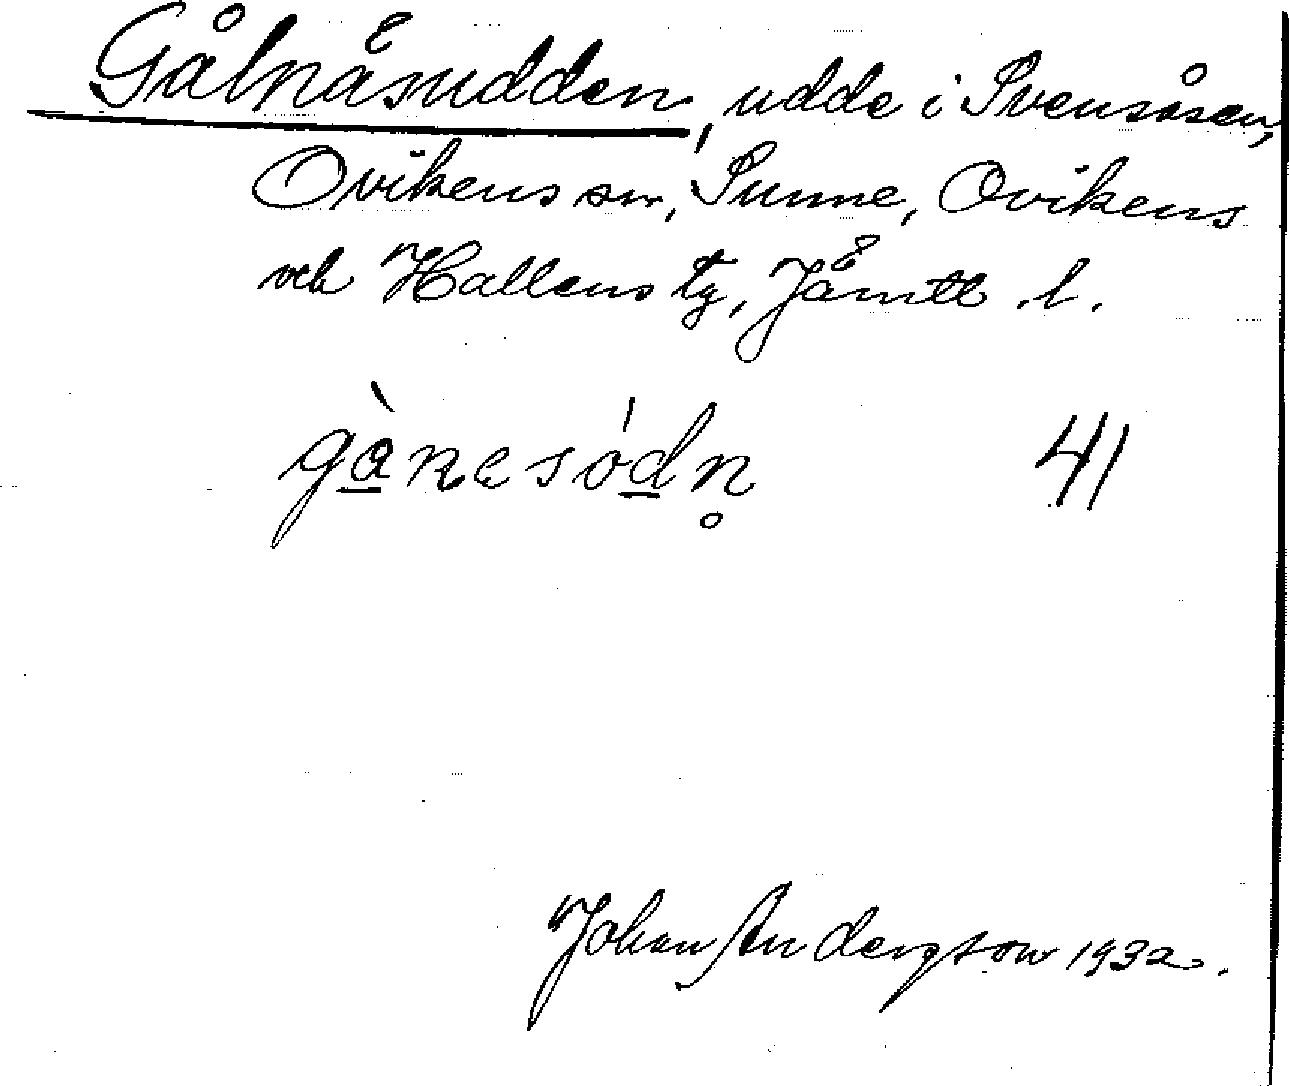 Gålnåsudden, udde i Svensåsen,
Ovikens sn, Sunne, Ovikens
och Hallens tg, Jämtl. l.
gànesódn̥ 41
Johan Anderzson 1932.